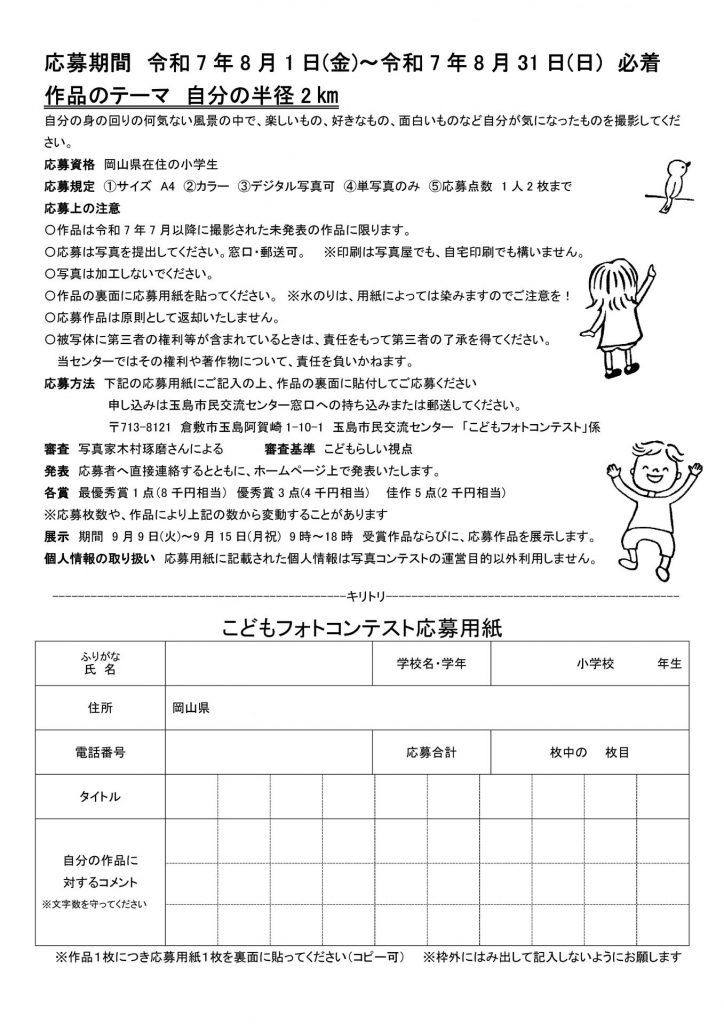 応募期間　令和７年８月１日(金)～令和７年８月31日(日)　必着
作品のテーマ　自分の半径２㎞
自分の身の回りの何気ない風景の中で、楽しいもの、好きなもの、面白いものなど自分が気になったものを撮影してくだ
さい。
応募資格　岡山県在住の小学生
応募規定　①サイズ　A4　②カラー　③デジタル写真可　④単写真のみ　⑤応募点数　１人２枚まで
応募上の注意
○作品は令和７年７月以降に撮影された未発表の作品に限ります。
○応募は写真を提出してください。窓口・郵送可。　※印刷は写真屋でも、自宅印刷でも構いません。
○写真は加工しないでください。
○作品の裏面に応募用紙を貼ってください。　※水のりは、用紙によっては染みますのでご注意を！
○応募作品は原則として返却いたしません。
○被写体に第三者の権利等が含まれているときは、責任をもって第三者の了承を得てください。
当センターではその権利や著作物について、責任を負いかねます。
応募方法　下記の応募用紙にご記入の上、作品の裏面に貼付してご応募ください
申し込みは玉島市民交流センター窓口への持ち込みまたは郵送してください。
〒713-8121　倉敷市玉島阿賀崎1-10-1　玉島市民交流センター　「こどもフォトコンテスト」係
審査　写真家木村琢磨さんによる　審査基準　こどもらしい視点
発表　応募者へ直接連絡するとともに、ホームページ上で発表いたします。
各賞　最優秀賞１点(８千円相当)　優秀賞３点(4千円相当)　佳作５点(２千円相当)
※応募枚数や、作品により上記の数から変動することがあります
展示　期間　９月９日(火)～９月15日(月祝)　９時～18時　受賞作品ならびに、応募作品を展示します。
個人情報の取り扱い　応募用紙に記載された個人情報は写真コンテストの運営目的以外利用しません。
キリトリ
こどもフォトコンテスト応募用紙
ふりがな
氏　名　学校名・学年　小学校　年生
住所　岡山県
電話番号　応募合計　枚中の　枚目
タイトル
自分の作品に
対するコメント
※文字数を守ってください
※作品１枚につき応募用紙１枚を裏面に貼ってください（コピー可）　※枠外にはみ出して記入しないようにお願します